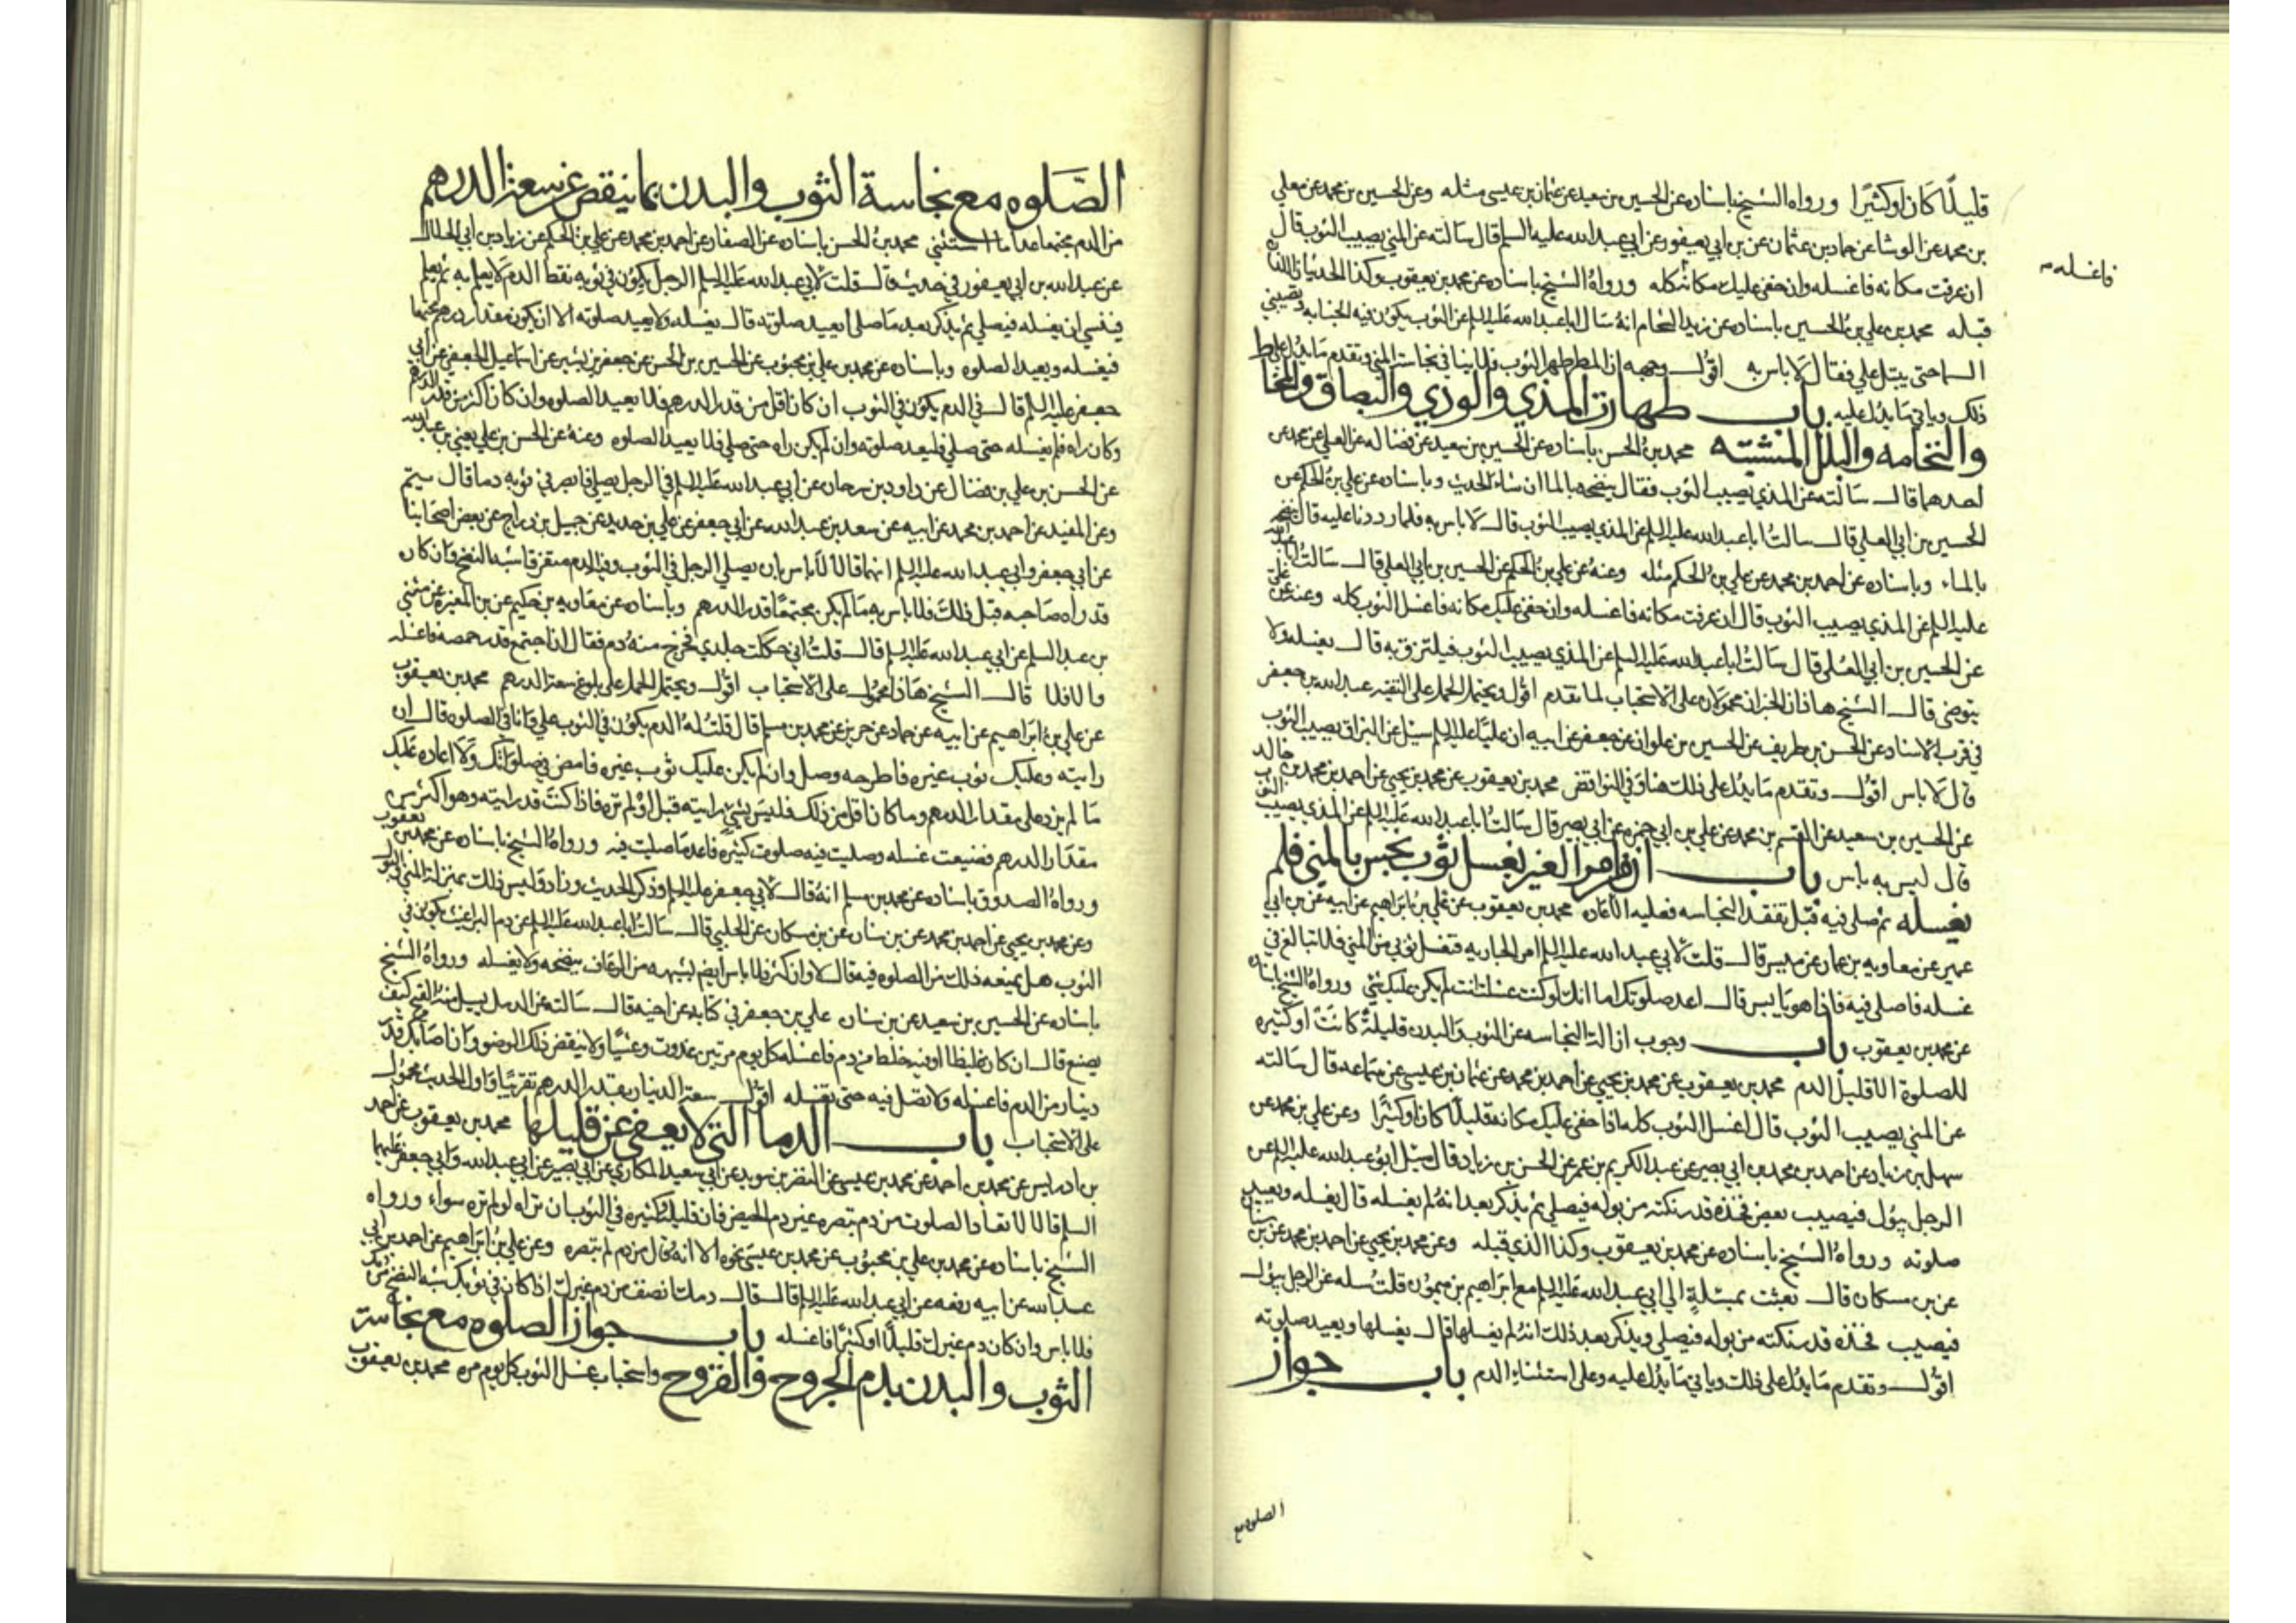 قليلًا كان او كثيرًا ورواه الشيخ باسناده عن الحسين بن سعيد عن عثمان بن عيسى مثله وعن الحسين بن محمد عن معلي
بن محمد عن الوشا عن حماد بن عثمان عن بن ابي يعفور عن ابي عبد الله عليه السلم قال سالته عن المني يصيب الثوب قال
ان عرفت مكانه فاغسله وان خفى عليك مكانه كله ورواهُ الشيخ باسناده عن محمد بن يعقوب وكذا الحديثان اللذان
فاغسله
قبله محمد بن علي بن الحسين باسناده عن زيد الشحام انهُ سال ابا عبد الله عليه السلم عن الثوب يكون فيه الجنابه وتصيبني
السما حتى يبتل علي فقال لا باس به اقول وجهه ان المطر طهر الثوب فلا ينافي نجاسة المني وتقدم ما يدل على
ذلك وياتي ما يدل عليه باب طهارة المذي والوذي والبصاق والمخاط
والنخامه والبلل المشتبه محمد بن الحسن باسناده عن الحسين بن سعيد عن فضاله عن العلى عن محمد عن
احدهما قال سالته عن المذي يصيب الثوب فقال ينضحه بالما ان شاء الحديث وباسناده عن علي بن الحكم عن
الحسين بن ابي العلي قال سالتُ ابا عبد الله عليه السلم عن المذي يصيب الثوب قال لا باس به فلما رددنا عليه قال ينضحه
بالماء وباسناده عن احمد بن محمد عن علي بن الحكم مثله وعنهُ عن علي بن الحكم عن الحسين بن ابي العلي قال سالتُ ابا عبد الله
عليه السلم عن المذي يصيب الثوب قال ان عرفت مكانه فاغسله وان خفى عليك مكانه فاغسل الثوب كله وعنه عن علي
عن الحسين بن ابي العلي قال سالتُ ابا عبد الله عليه السلم عن المذي يصيب الثوب فيلتزق به قال يغسله ولا
يتوضى قال الشيخ هاذان الخبران محمولان على الاستحباب لما تقدم اقول ويحتمل الحمل على التقيه عبد الله بن جعفر
في قرب الاسناد عن الحسن بن طريف عن الحسين بن علوان عن جعفر عن ابيه ان عليًا عليه السلم سيل عن البزاق يصيب الثوب
قال لا باس اقول وتقدم ما يدل على ذلك هنا وفي النواقض محمد بن يعقوب عن محمد بن يحيى عن احمد بن محمد بن خالد
عن الحسين بن سعيد عن القسم بن محمد عن علي بن ابي حمزه عن ابي بصير قال سالتُ ابا عبد الله عليه السلم عن المذي يصيب الثوب
قال ليس به باس باب ان من امر الغير بغسل ثوب نجس بالمني فلم
يغسله ثم صلى فيه قبل تفقد النجاسه فعليه الاعاده محمد بن يعقوب عن علي بن ابراهيم عن ابيه عن بن ابي
عمير عن معاويه بن عمار عن ميسر قال قلت لابي عبد الله عليه السلم امر الجاريه فتغسل ثوبي من المني فلا تبالغ في
غسله فاصلى فيه فاذا هو يابس قال اعد صلوتك اما انك لو كنت غسلت انت لم يكن عليك شي ورواهُ الشيخ باسناده
عن محمد بن يعقوب باب وجوب ازالة النجاسه عن الثوب والبدن قليلةً كانت او كثيره
للصلوة الا قليل الدم محمد بن يعقوب عن محمد بن يحيى عن احمد بن محمد عن عثمان بن عيسى عن سماعه قال سالته
عن المني يصيب الثوب قال اغسل الثوب كله اذا خفى عليك مكانه قليلًا كان او كثيرًا وعن علي بن محمد عن
سهل بن زياد عن احمد بن محمد بن ابي بصير عن عبد الكريم بن عمر عن الحسن بن زياد قال سئل ابو عبد الله عليه السلم عن
الرجل يبول فيصيب بعض فخذه قدر نكته من بوله فيصلي ثم يذكر بعد انهُ لم يغسله قال يغسله ويعيد
صلوته ورواهُ الشيخ باسناده عن محمد بن يعقوب وكذا الذي قبله وعن محمد بن يحيى عن احمد بن محمد عن بن سنان
عن بن مسكان قال بعثت بمسئلةٍ الى ابي عبد الله عليه السلم مع ابراهيم بن ميمون قلتُ سله عن الرجل يبول
فيصيب فخذه قدر نكته من بوله فيصلي ويذكر بعد ذلك انهُ لم يغسلها قال يغسلها ويعيد صلوته
اقول وتقدم ما يدل على ذلك وياتي ما يدل عليه وعلى استثناء الدم باب جواز
الصلوه مع
الصَّلوه مع نجاسة الثوب والبدن بما ينقص عن سعة الدرهم
من الدم مجتمعا عدا ما استثنى محمد بن الحسن باسناده عن الصفار عن احمد بن محمد عن علي بن الحكم عن زياد بن ابي الحلال
عن عبد الله بن ابي يعفور في حديث قال قلت لابي عبد الله عليه السلم الرجل يكون في ثوبه نقط الدم لا يعلم به ثم يعلم
فينسى ان يغسله فيصلي ثم يذكر بعد ما صلى ايعيد صلوته قال يغسله ولا يعيد صلوته الا ان يكون مقدار درهم مجتمعا
فيغسله ويعيد الصلوه وباسناده عن محمد بن علي بن محبوب عن الحسين بن الحسن عن جعفر بن بشير عن اسماعيل الجعفي عن ابي
جعفر عليه السلم قال في الدم يكون في الثوب ان كان اقل من قدر الدرهم فلا يعيد الصلوه وان كان اكثر من قدر الدرهم
وكان راه فلم يغسله حتى صلى فليعد صلوته وان لم يكن راه حتى صلى فلا يعيد الصلوه وعنهُ عن الحسن بن علي يعني بن عبد الله
عن الحسن بن علي بن فضال عن داود بن سرحان عن ابي عبد الله عليه السلم في الرجل يصلي فابصر في ثوبه دما قال يتم
وعن المفيد عن احمد بن محمد عن ابيه عن سعد بن عبد الله عن ابي جعفر عن علي بن حديد عن جميل بن دراج عن بعض اصحابنا
عن ابي جعفر وابي عبد الله عليه السلم انهما قالا لا باس بان يصلي الرجل في الثوب وفيه الدم متفرقا شبه النضح وان كان
قد راه صاحبه قبل ذلك فلا باس به ما لم يكن مجتمعًا قدر الدرهم وباسناده عن معاويه بن حكيم عن بن المغيره عن مثنى
بن عبد السلم عن ابي عبد الله عليه السلم قال قلتُ اني حككت جلدي فخرج منه دم فقال ان اجتمع قدر حمصه فاغسله
والا فلا قال الشيخ هاذا محمول على الاستحباب اقول ويحتمل الحمل على بلوغ سعة الدرهم محمد بن يعقوب
عن علي بن ابراهيم عن ابيه عن حماد عن حريز عن محمد بن مسلم قال قلتُ لهُ الدم يكون في الثوب علي وانا في الصلوه قال ان
رايته وعليك ثوب غيره فاطرحه وصل وان لم يكن عليك ثوب غيره فامض في صلوتك ولا اعاده عليك
ما لم يزد على مقدار الدرهم وما كان اقل من ذلك فليس بشي رايته قبل او لم تره فاذا كنت قد رايته وهو اكثر من
مقدار الدرهم فضيعت غسله وصليت فيه صلوت كثيره فاعد ما صليت فيه ورواهُ الشيخ باسناده عن محمد بن يعقوب
ورواهُ الصدوق باسناده عن محمد بن مسلم انهُ قال لابي جعفر عليه السلم وذكر الحديث وزاد وليس ذلك بمنزلة المني والبول
وعن محمد بن يحيى عن احمد بن محمد عن بن سنان عن بن مسكان عن الحلبي قال سالتُ ابا عبد الله عليه السلم عن دم البراغيث يكون في
الثوب هل يمنعه ذلك من الصلوه فيه قال لا وان كثر فلا باس ايضم بشبهه من الرعاف ينضحه ولا يغسله ورواهُ الشيخ
باسناده عن الحسين بن سعيد عن بن سنان علي بن جعفر في كتابه عن اخيه قال سالته عن الدمل يسيل منهُ القيح كيف
يصنع قال ان كان غليظا او فيه خلط من دم فاغسله كل يوم مرتين غدوت وعشيًا ولا ينقض ذلك الوضو وان اصابك قدر
دينار من الدم فاغسله ولا تصل فيه حتى تغسله اقول سعة الدينار بقدر الدرهم تقريبًا واول الحديث محمول
على الاستحباب باب الدما التي لا يعفى عن قليلها محمد بن يعقوب عن احمد
بن ادريس عن محمد بن احمد عن محمد بن عيسى عن النضر بن سويد عن ابي سعيد المكاري عن ابي بصير عن ابي عبد الله وابي جعفر عليهما
السلم قالا لا تعاد الصلوت من دم تبصره غير دم الحيض فان قليله وكثيره في الثوب ان تراه او لم تره سواء ورواه
الشيخ باسناده عن محمد بن علي بن محبوب عن محمد بن عيسى نحوه الا انهُ قال من دم لم تبصره وعن علي بن ابراهيم عن احمد بن ابي
عبد الله عن ابيه رفعه عن ابي عبد الله عليه السلم قال قال دمك انضف من دم غيرك اذا كان في ثوبك شبه النضح من دمك
فلا باس وان كان دم غيرك قليلًا او كثيرًا فاغسله باب جواز الصلوه مع نجاسة
الثوب والبدن بدم الجروح والقروح واستحباب غسل الثوب كل يوم مره محمد بن يعقوب